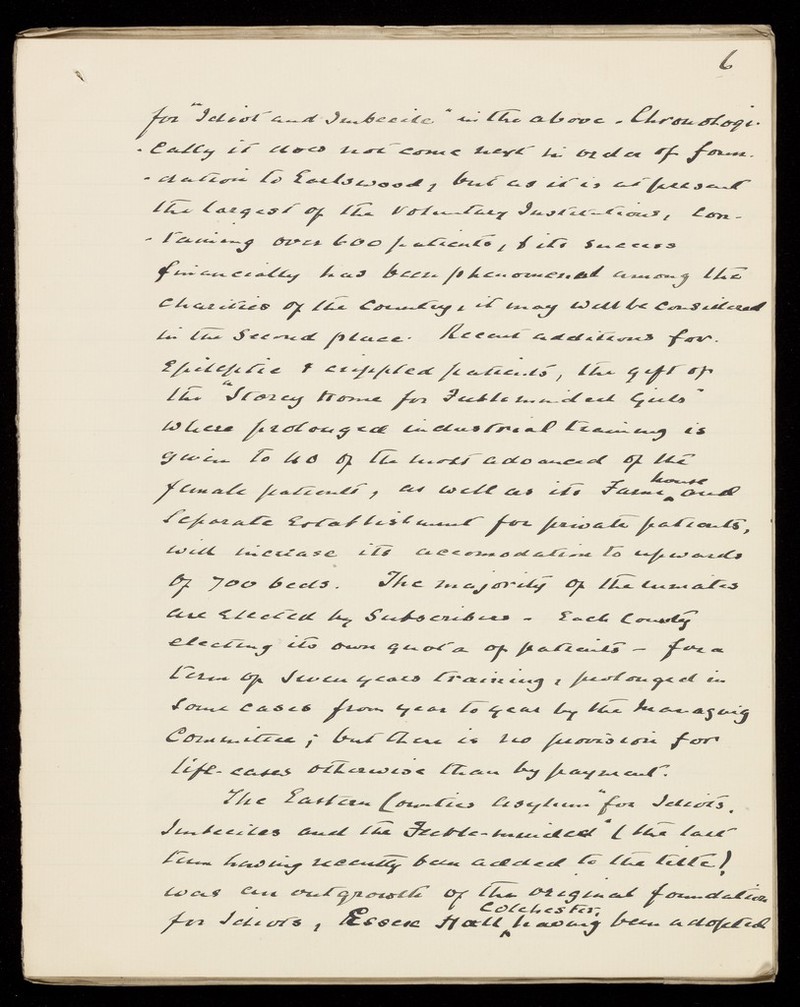 6
for "Idiot and Imbecile" in the above. Chronologi-
-cally it does not come next in order of foun-
-dation to Earlswood, but as it is at present
the largest of the Voluntary Institutions, con-
-taining over 600 patients, & its success
financially has been phenomenal among the
charities of the Country, it may well be considered
in the second place. Recent additions for
Epileptic & crippled patients, the gift of
the "Storey Home for Feebleminded Girls"
where prolonged industrial training is
given to 40 of the most advanced of the
female patients, as well as its Farm house and
Separate Establishment for private patients,
will increase its accomodation to upwards
of 700 beds. The majority of the inmates
are elected by Subscribers - Each County
electing its own quota of patients - for a
term of seven years training, prolonged in
some cases from year to year by the Managing
Committee; but there is no provision for
life-cases otherwise than by payment.
The Eastern Counties Asylum "for Idiots,
Imbeciles and the Feeble-minded" (the last
term having recently been added to the title)
was an outgrowth of the original foundation
for Idiots, Essex Hall Colchester, having been adopted